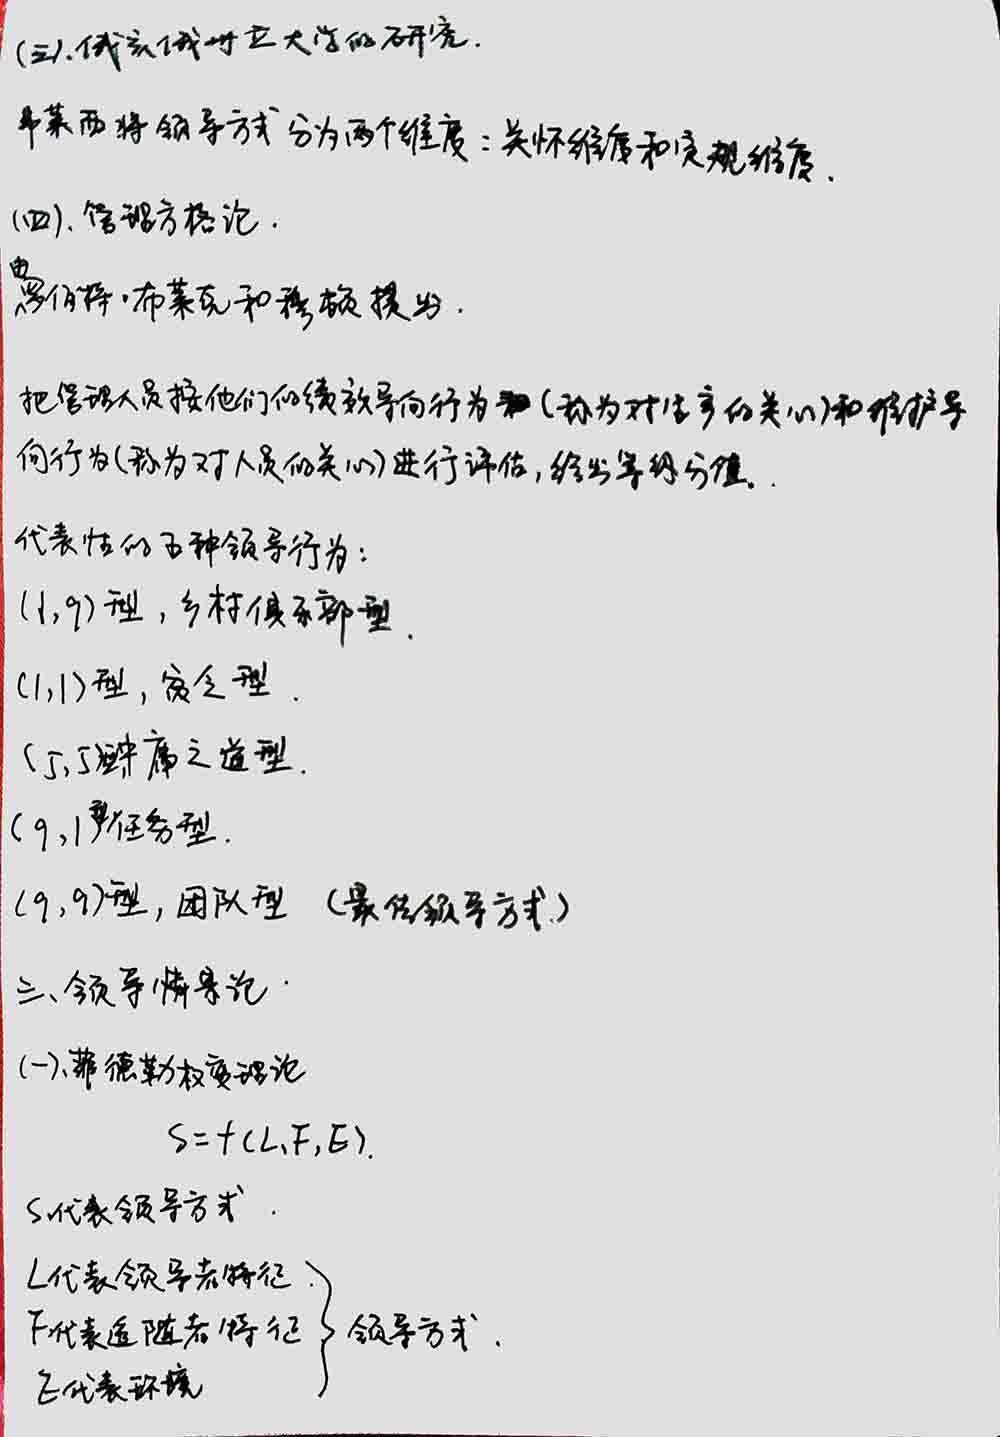 (三).俄亥俄州立大学的研究.
弗莱西将领导方式分为两个维度:关怀维度和定规维度.
(四).管理方格论.
由
罗伯特·布莱克和穆顿提出.
把管理人员按他们的绩效导向行为(称为对生产的关心)和维护导
向行为(称为对人员的关心)进行评估,给出等级分值.
代表性的五种领导行为:
(1,9)型,乡村俱乐部型.
(1,1)型,贫乏型.
(5,5)型中庸之道型.
(9,1)型任务型.
(9,9)型,团队型 (最佳领导方式.)
三、领导情景论.
(一).菲德勒权变理论
S=f(L,F,E).
S代表领导方式.
L代表领导者特征.
F代表追随者特征 领导方式.
E代表环境